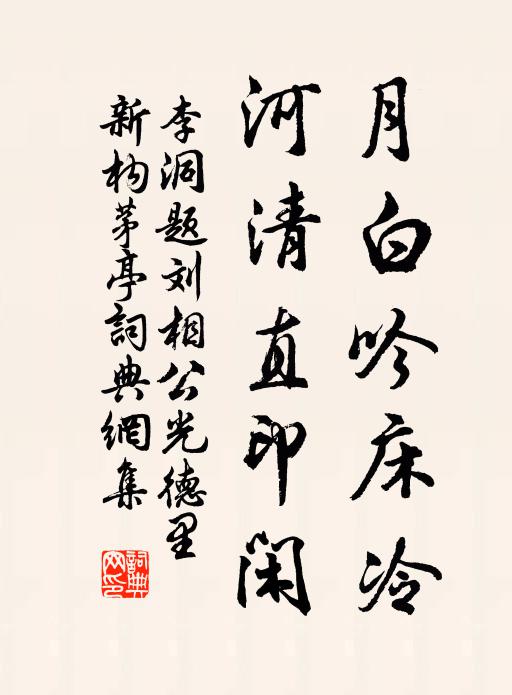 月白吟床冷
河清直印闲
李洞题刘相公光德里
新构茅亭詞典網集
詞典
网印